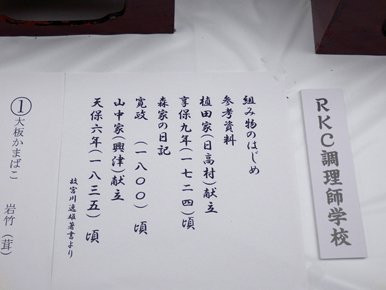 RKC調理師学校
組み物のはじめ
参考資料
植田家(日高村)献立
享保九年(一七二四)頃
森家の日記
寛政 (一八〇〇) 頃
山中家(興津)献立
天保六年(一八三五)頃
故宮川逸雄著書より
①大板かまぼこ 岩竹(茸)